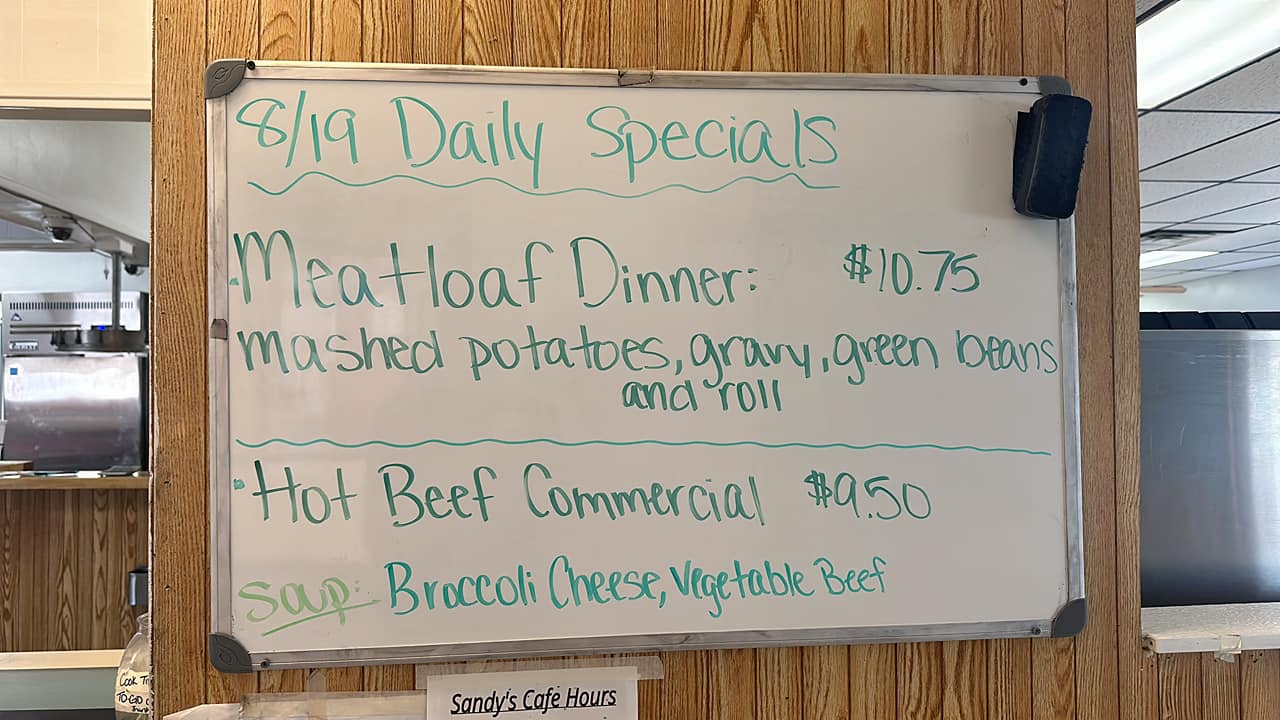 8/19 Daily Specials
Meatloaf Dinner: $10.75
mashed potatoes, gravy, green beans
and roll
Hot Beef Commercial $9.50
Soup: Broccoli Cheese, Vegetable Beef
Sandy's Cafe Hours
Cook
TO-GO